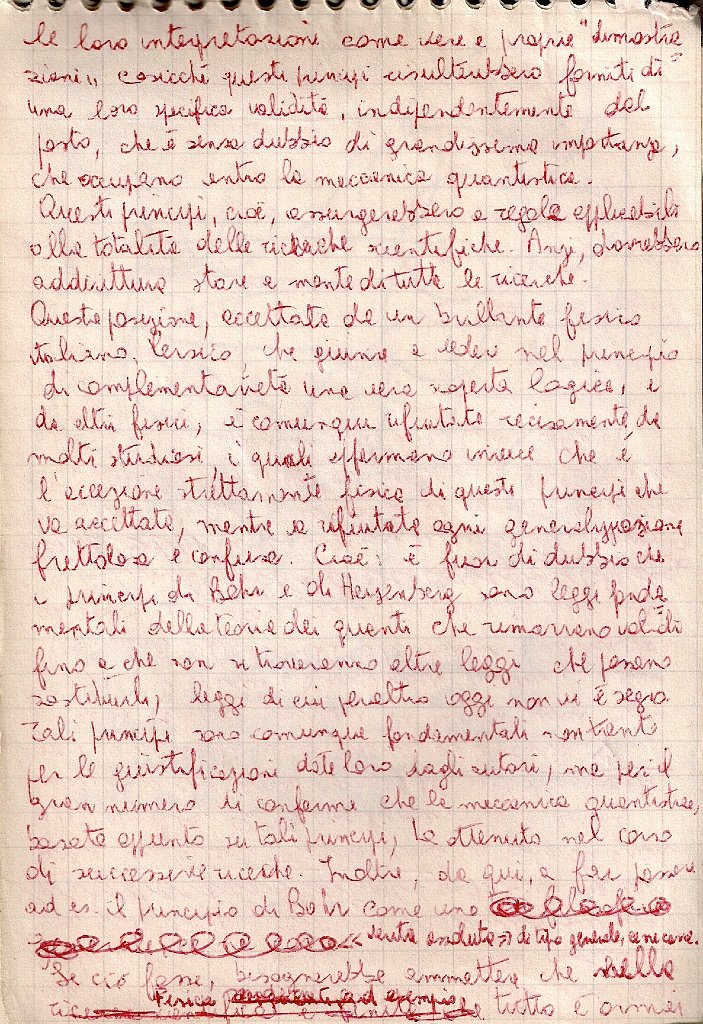 le loro interpretazione come vere e proprie "dimostra=
zioni" cosicché questi principi risulterebbero forniti di
una loro specifica validità, indipendentemente dal
posto, che è senza dubbio di grandissima importanza,
che occupano entro la meccanica quantistica.
Questi principi, cioè, assurgerebbero a regole applicabili
alla totalità delle ricerche scientifiche. Anzi, dovrebbero
addirittura stare a monte di tutte le ricerche.
Questa posizione, accettata da un brillante fisico
italiano, Persico, che giunse a veder nel principio
di complementarietà una vera scoperta logica, e
da altri fisici, è comunque rifiutata recisamente da
molti studiosi, i quali affermano invece che è
l'accezione strettamente fisica di questi principi che
va accettata, mentre va rifiutata ogni generalizzazione
frettolosa e confusa. Cioè: è fuor di dubbio che
i principi di Bohr e di Heisenberg sono leggi fonda=
mentali della teoria dei quanti che rimarranno validi
fino a che non si troveranno altre leggi che possano
sostituirli, leggi di cui peraltro oggi non vi è segno
Tali principi sono comunque fondamentali non tanto
per le giustificazioni date loro dagli autori, ma per il
gran numero di conferme che la meccanica quantistica,
basata appunto su tali principi, ha ottenuto nel corso
di successive ricerche. Inoltre, da qui, a far passare
ad es. il principio di Bohr come una
verità assoluta => di tipo generale, ce ne corre.
Se ciò fosse, bisognerebbe ammettere che nella
Fisica
tutto è ormai